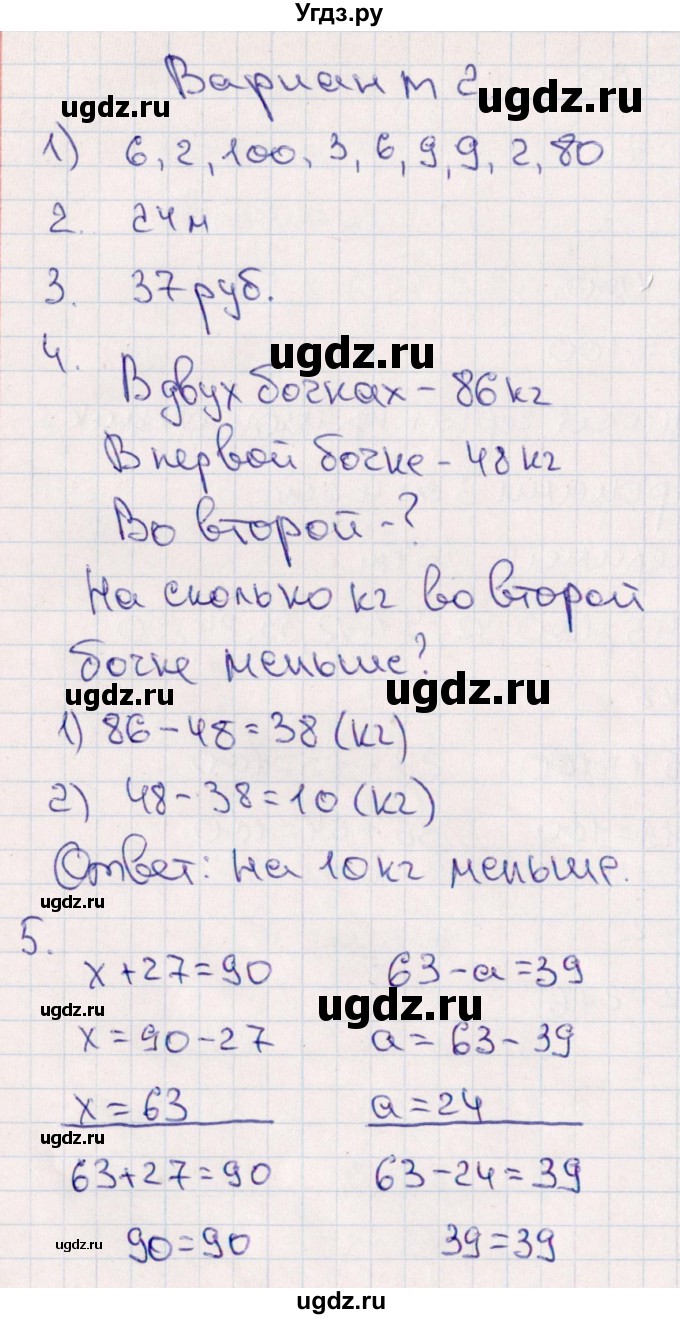 Угдз.ру
Вариант 2
ugdz.ru ugdz.ru
1) 6, 2, 100, 3, 6, 9, 9, 2, 80
2. 24 м
3. 37 руб.
ugdz.ru
4. В двух бочках - 86 кг
В первой бочке - 48 кг
Во второй - ?
На сколько кг во второй
бочке меньше?
ugdz.ru ugdz.ru
1) 86 - 48 = 38 (кг)
2) 48 - 38 = 10 (кг)
Ответ: на 10 кг меньше.
ugdz.ru
5.
x + 27 = 90 63 - a = 39
ugdz.ru ugdz.ru
x = 90 - 27 a = 63 - 39
x = 63 a = 24
ugdz.ru
63 + 27 = 90 63 - 24 = 39
ugdz.ru 90 = 90 39 = 39
ugdz.ru